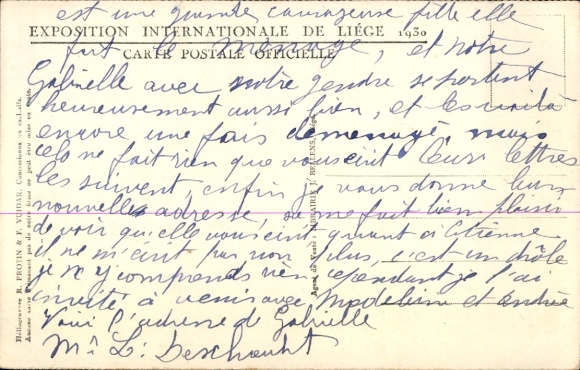 est une grande courageuse fille elle
EXPOSITION INTERNATIONALE DE LIÉGE 1930
fait le ménage, et notre
CARTE POSTALE OFFICIELLE
Gabrielle avec notre gendre se portent
heureusement aussi bien, et les voilà
encore une fois demenagé, mais
cela ne fait rien que vous ecrit leurs lettres
les suivent enfin je vous donne leur
nouvelle adresse, sa me fait bien plaisir
de voir qu'elle vous ecrit quant à Etienne
il ne m'écrit pas non plus, c'est un drôle
je n'y comprends rien cependant je l'ai
invité à venir avec Madeleine et Andrée
Voici l'adresse de Gabrielle
Mr L.
Héliogravure R. PROTIN & F. VUIDAR, Concessionnaires exclusifs.
Agent de Vente : LIBRAIRIE J. BELLENS, Liége